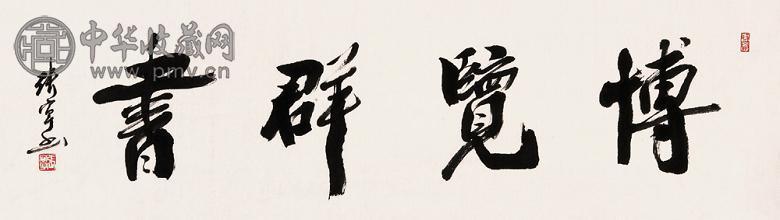 博覽群書
中华收藏网
www.pmv.cn